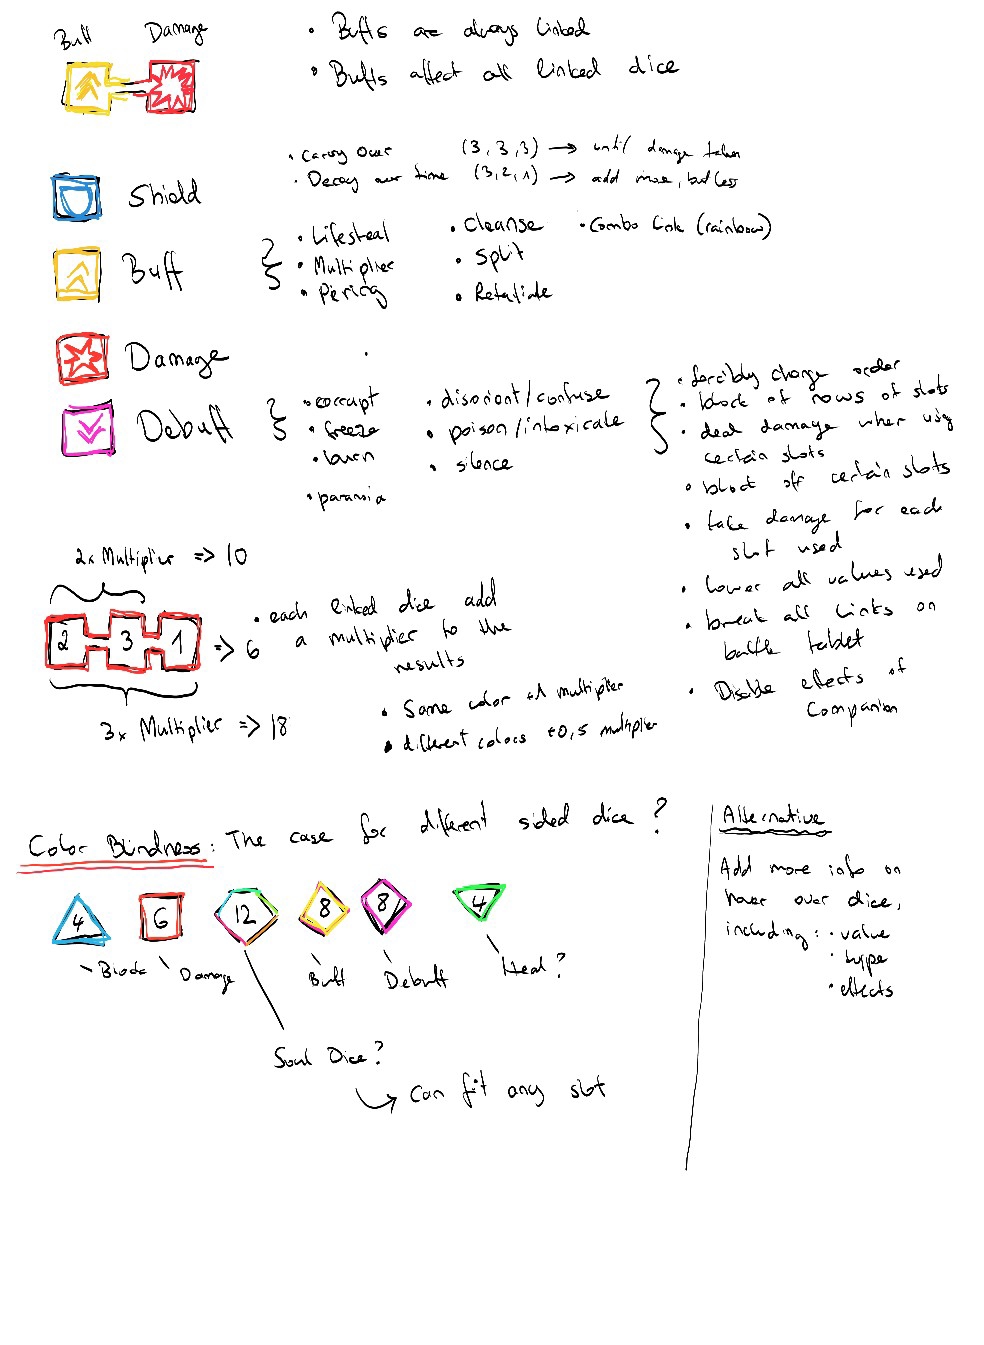 Buff Damage
• Buffs are always linked
• Buffs affect all linked dice
Shield
• Carry over (3, 3, 3) → until damage taken
• Decay over time (3, 2, 1) → add more, but less
Buff
• Lifesteal • Cleanse • Combo link (rainbow)
• Multiplier • Split
• Piercing • Retaliate
Damage
Debuff
• corrupt • disorient/confuse
• freeze • poison/intoxicate
• burn • silence
• paranoia
• forcibly change order
• block of rows of slots
• deal damage when using
certain slots
• block off certain slots
• take damage for each
slot used
• lower all values used
• break all links on
battle tablet
• Disable effects of
Companion
2x Multiplier => 10
2 3 1 => 6
3x Multiplier => 18
• each linked dice add
a multiplier to the
results
• Same color +1 multiplier
• different colors +0,5 multiplier
Color Blindness: The case for different sided dice?
4 6 12 8 8 4
Block Damage Buff Debuff Heal?
Soul Dice?
Can fit any slot
Alternative
Add more info on
hover over dice,
including: • value
• type
• effects